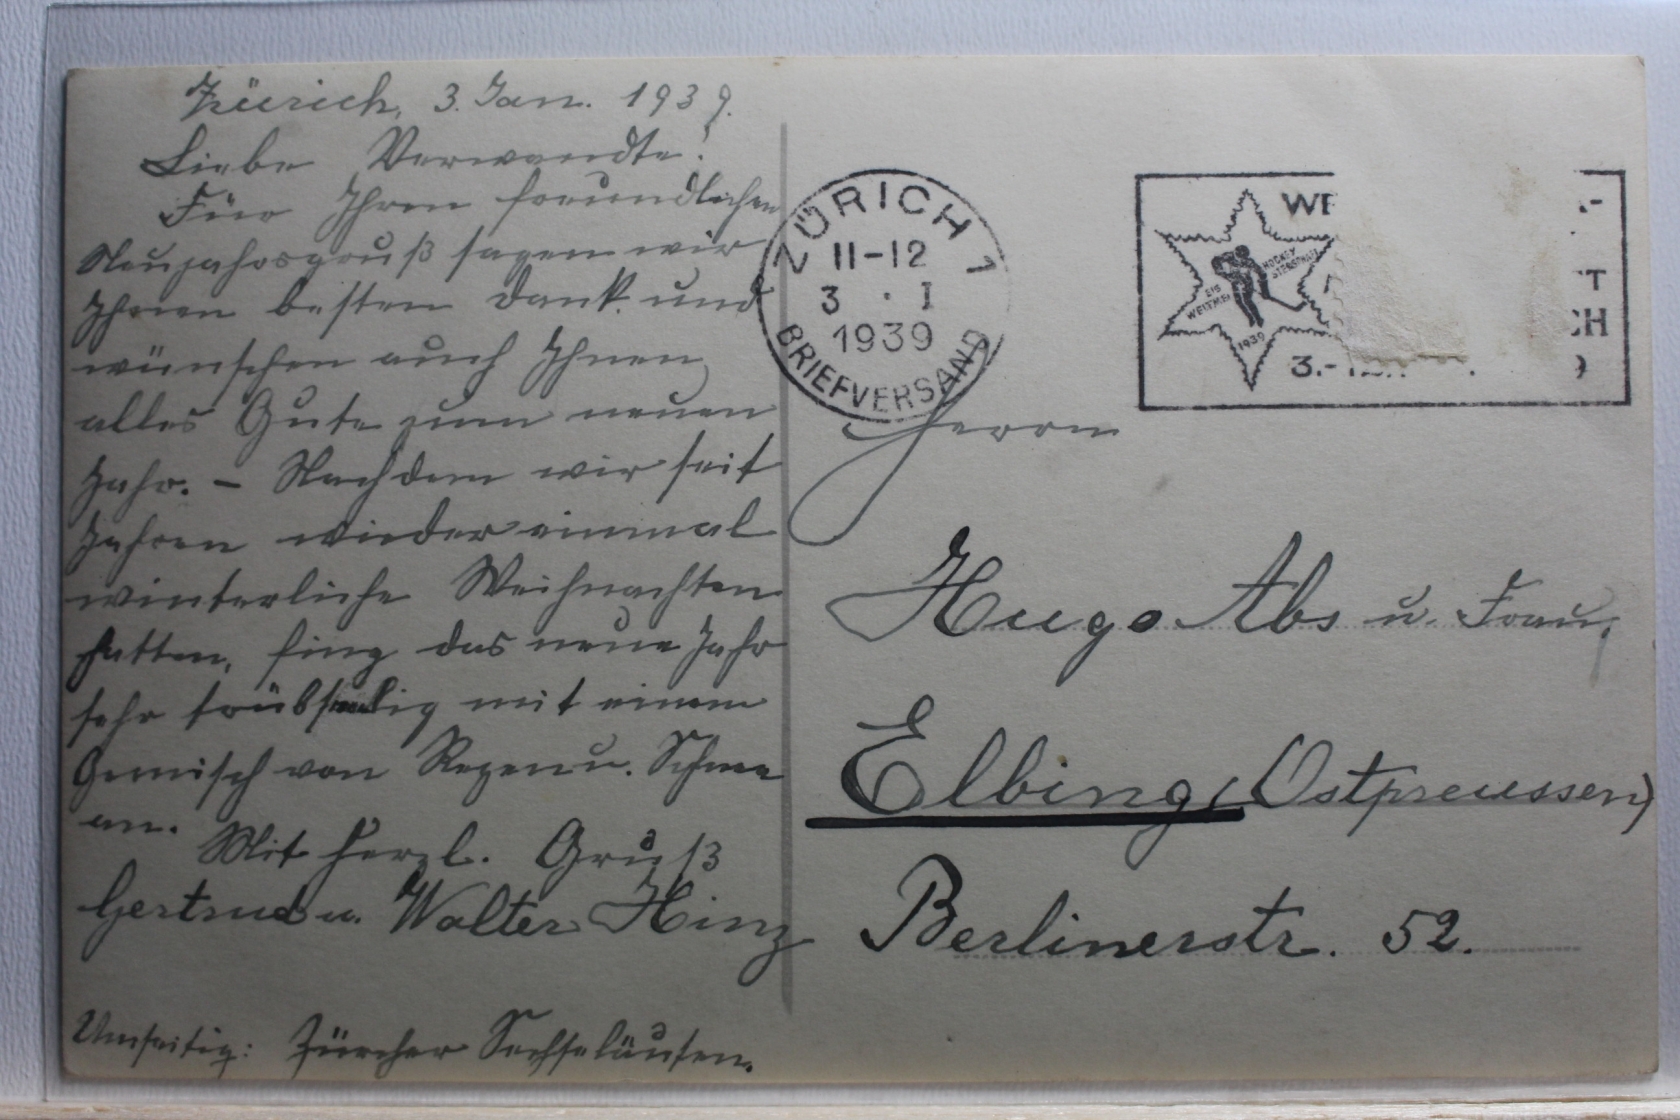 Zürich, 3. Jan. 1939.
Liebe Verwandte!
Für Ihren freundlichen
Neujahrsgruß sagen wir
Ihnen besten Dank und
wünschen auch Ihnen
alles Gute zum neuen
Jahr. – Nachdem wir seit
Jahren wieder einmal
winterliche Weihnachten
hatten, fing das neue Jahr
sehr trübselig mit einem
Gemisch von Regen u. Schnee
an.
Mit herzl. Gruß
Gertrud u. Walter Hinz
Umseitig: Zürcher Sechseläuten.
ZÜRICH 1
11-12
3 · I
1939
BRIEFVERSAND
HOCKEY
EIS
1939
Herrn
Hugo Abs u. Frau,
Elbing, (Ostpreussen)
Berlinerstr. 52.